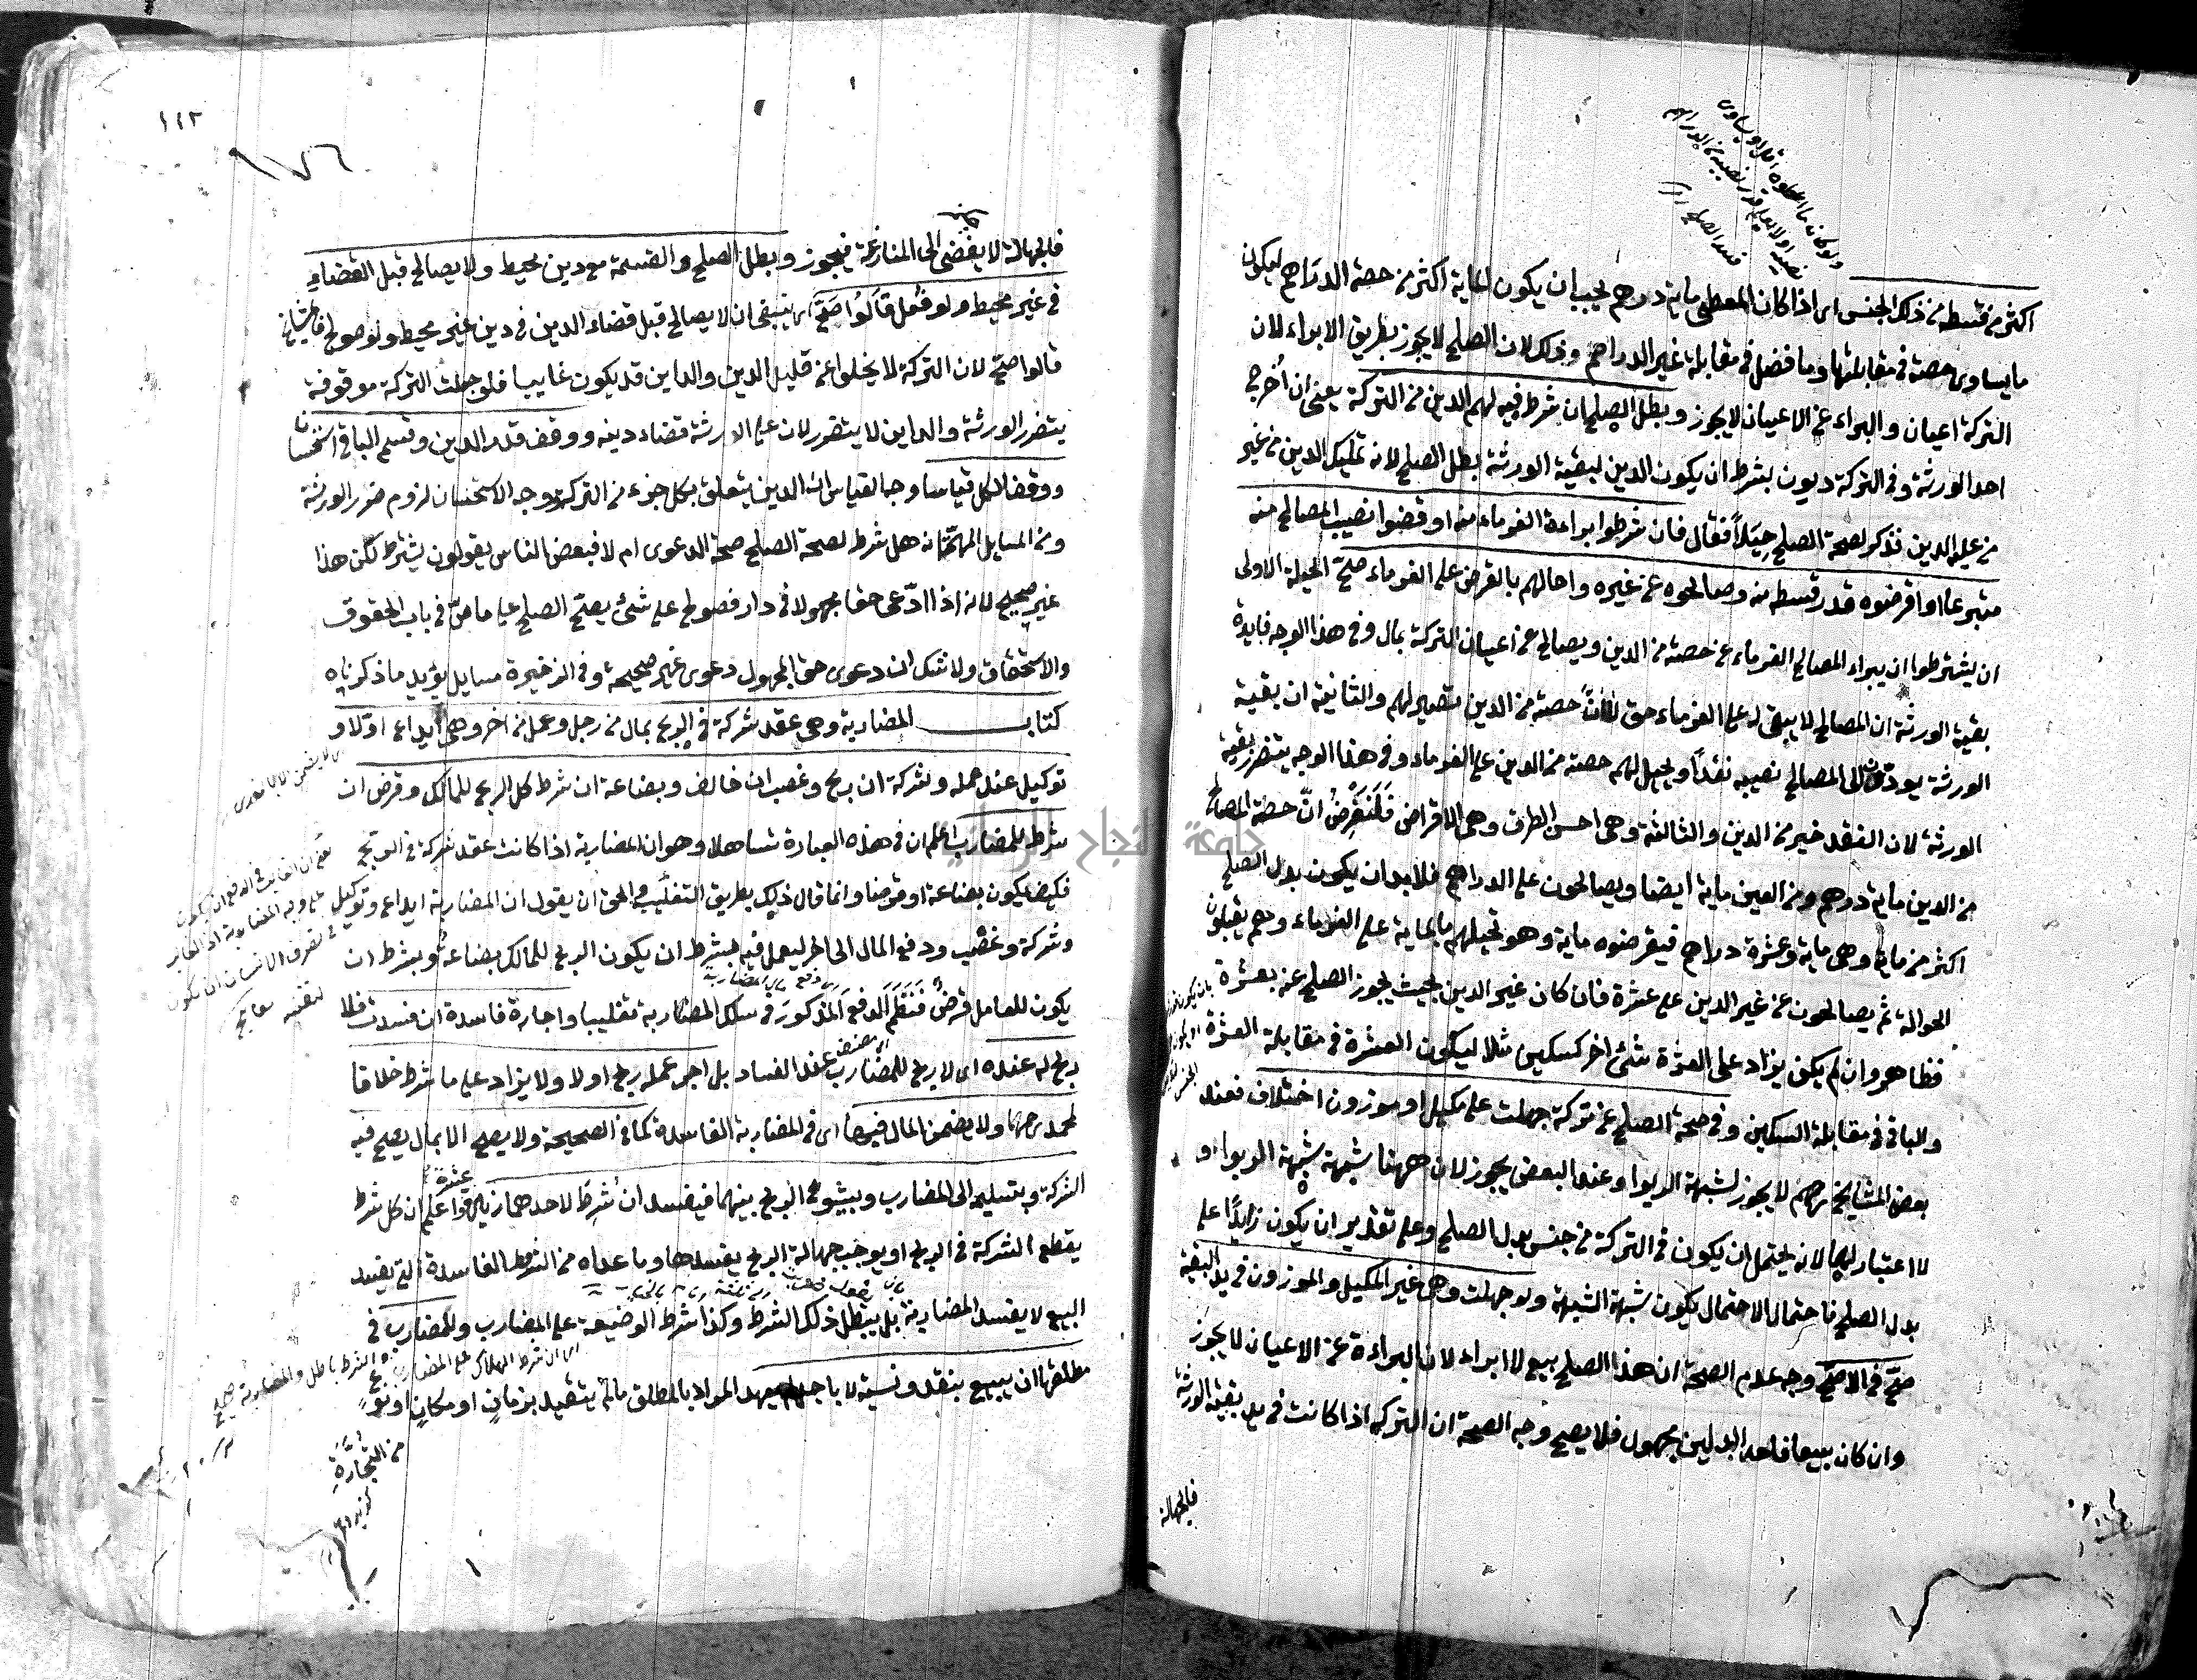 اكثر من قسطه من ذلك الجنس اى اذا كان المعطى ماية درهم يجب ان يكون الماية اكثر من حصة الدراهم ليكون
ما يساوى حصته فى مقابلتها وما فضل فى مقابلة غير الدراهم وذلك لان الصلح لا يجوز بطريق الابراء لان
التركة اعيان والبراء عن الاعيان لا يجوز وبطل الصلح ان شرط فيه لهم الدين من التركة يعنى ان اخرج
احد الورثة وفى التركة ديون بشرط ان يكون الدين لبقية الورثة بطل الصلح لانه تمليك الدين من غير
من عليه الدين فذكر لصحة الصلح حيلاً فقال فان شرطوا براءة الغرماء منه او قضوا نصيب المصالح منه
متبرعا او اقرضوه قدر قسطه منه وصالحوه عن غيره واحالهم بالقرض على الغرماء صح الحيلة الاولى
ان يشترطوا ان يبراء المصالح الغرماء عن حصته من الدين ويصالح عن اعيان التركة بمال وفى هذا الوجه فايدة
بقية الورثة ان المصالح لا يبقى له على الغرماء حق لا ان حصته من الدين تصير لهم والثانية ان بقية
الورثة يودون الى المصالح نصيبه نقداً ويحيل لهم حصته من الدين على الغرماء وفى هذا الوجه يتضرر بقية
الورثة لان النقد خير من الدين والثالثة وهى احسن الطرق وهى الاقراض فلنفرض ان حصة المصالح
من الدين ماية درهم ومن العين ماية ايضا ويصالحون على الدراهم فلا بد ان يكون بدل الصلح
اكثر من ماية وهى ماية وعشرة دراهم فيقرضوه ماية وهو يحيلهم بالماية على الغرماء وهم يقبلون
الحوالة ثم يصالحون عن غير الدين على عشرة فان كان غير الدين بحيث يجوز الصلح عنه بعشرة
فظاهر وان لم يكن يزاد على العشرة شئ اخر كسكين مثلا ليكون العشرة فى مقابلة العشرة
والباقى فى مقابلة السكين وفى صحة الصلح عن تركة جهلت على مكيل او موزون اختلاف فعند
بعض المشايخ رحمهم لا يجوز لشبهة الربوا وعند البعض يجوز لان ههنا شبهة شبهة الربوا و
لا اعتبار لها لانه يحتمل ان يكون فى التركة من جنس بدل الصلح وعلى تقدير ان يكون زايداً على
بدل الصلح فاحتمال الاحتمال يكون شبهة الشبهة ولو جهلت وهى غير المكيل والموزون فى يد البقية
صح فى الاصح وجه عدم الصحة ان هذا الصلح بيع لا ابراء لان البراءة عن الاعيان لا يجوز
وان كان بيعا فاحد البدلين مجهول فلا يصح وجه الصحة ان التركة اذا كانت فى يد بقية الورثة
فالجهالة
١١٣
١٧٦
فالجهالة لا يفضى الى المنازعة فيجوز وبطل الصلح والقسمة مع دين محيط ولا يصالح قبل القضاء
فى غير محيط ولو فعل قالوا صح اى ينبغى ان لا يصالح قبل قضاء الدين فى دين غير محيط ولو صولح فالمشايخ
قالوا صح لان التركة لا يخلوا عن قليل الدين والداين قد يكون غايبا فلو جعلت التركة موقوفة
يتضرر الورثة والداين لا يتضرر لان على الورثة قضاء دينه ووقف قدر الدين وقسم الباقى استحسانا
ووقف الكل قياسا وجه القياس ان الدين يتعلق بكل جزء من التركة وجه الاستحسان لزوم ضرر الورثة
ومن المسايل المهمة انه هل شرط لصحة الصلح صحة الدعوى ام لا فبعض الناس يقولون يشترط لكن هذا
غير صحيح لانه اذا ادعى حقا مجهولا فى دار فصولح على شئ يصح الصلح على ما مر فى باب الحقوق
والاستحقاق ولا شك ان دعوى حق المجهول دعوى غير صحيحة وفى الذخيرة مسايل يؤيد ما ذكرناه
كتاب المضاربة وهى عقد شركة فى الربح بمال من رجل وعمل من اخر وهى ايداع اولا و
توكيل عند عمله وشركة ان ربح وغصب ان خالف وبضاعة ان شرط كل الربح للمالك وقرض ان
شرط للمضارب اعلم ان فى هذه العبارة تساهلا وهو ان المضاربة اذا كانت عقد شركة فى الربح
فكيف يكون بضاعة او قرضا وانما قال ذلك بطريق التغليب والحق ان يقول ان المضاربة ايداع وتوكيل
وشركة وغصب ودفع المال الى اخر ليعمل فيه بشرط ان يكون الربح للمالك بضاعة وبشرط ان
يكون للعامل قرض فنظم الدفع المذكور فى سلك المضاربة تغليبا واجارة فاسدة ان فسدت فلا
ربح له عنده اى لا ربح للمضارب عند الفساد بل اجر عمله ربح اولا ولا يزاد على ما شرط خلافا
لمحمد رحمهما ولا يضمن المال فيها اى فى المضاربة الفاسدة كما فى الصحيحة ولا يصح الا بمال يصح فيه
الشركة وبتسليمه الى المضارب وبشيوع الربح بينهما فيفسد ان شرط لاحدهما زيادة عشرة واعلم ان كل شرط
يقطع الشركة فى الربح او يوجب جهالة الربح يفسدها وما عداه من الشروط الفاسدة التى يفسد
البيع لا يفسد المضاربة بل يبطل ذلك الشرط وكذا شرط الوضيعة على المضارب وللمضارب فى
مطلقها ان يبيع بنقد ونسية لا باجل لم يعهد المراد بالمطلق ما لم يتقيد بزمان او مكان او نوع
من التجارة